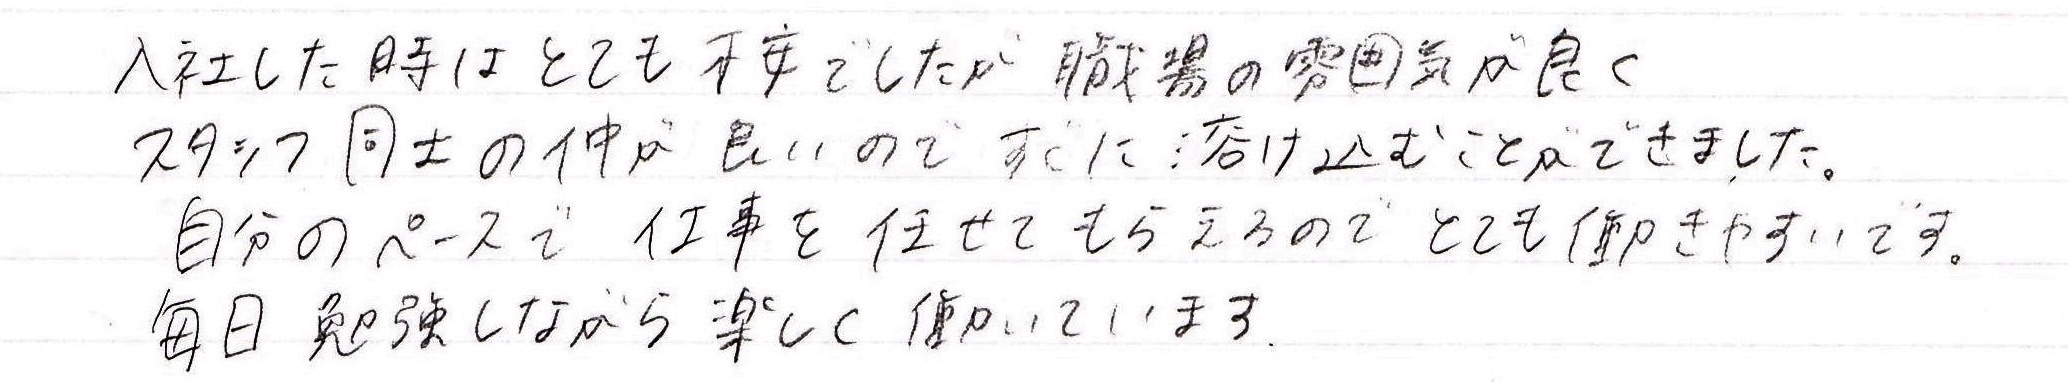 入社した時はとても不安でしたが職場の雰囲気が良く
スタッフ同士の仲が良いのですぐに溶け込むことができました。
自分のペースで仕事を任せてもらえるのでとても働きやすいです。
毎日勉強しながら楽しく働いています.